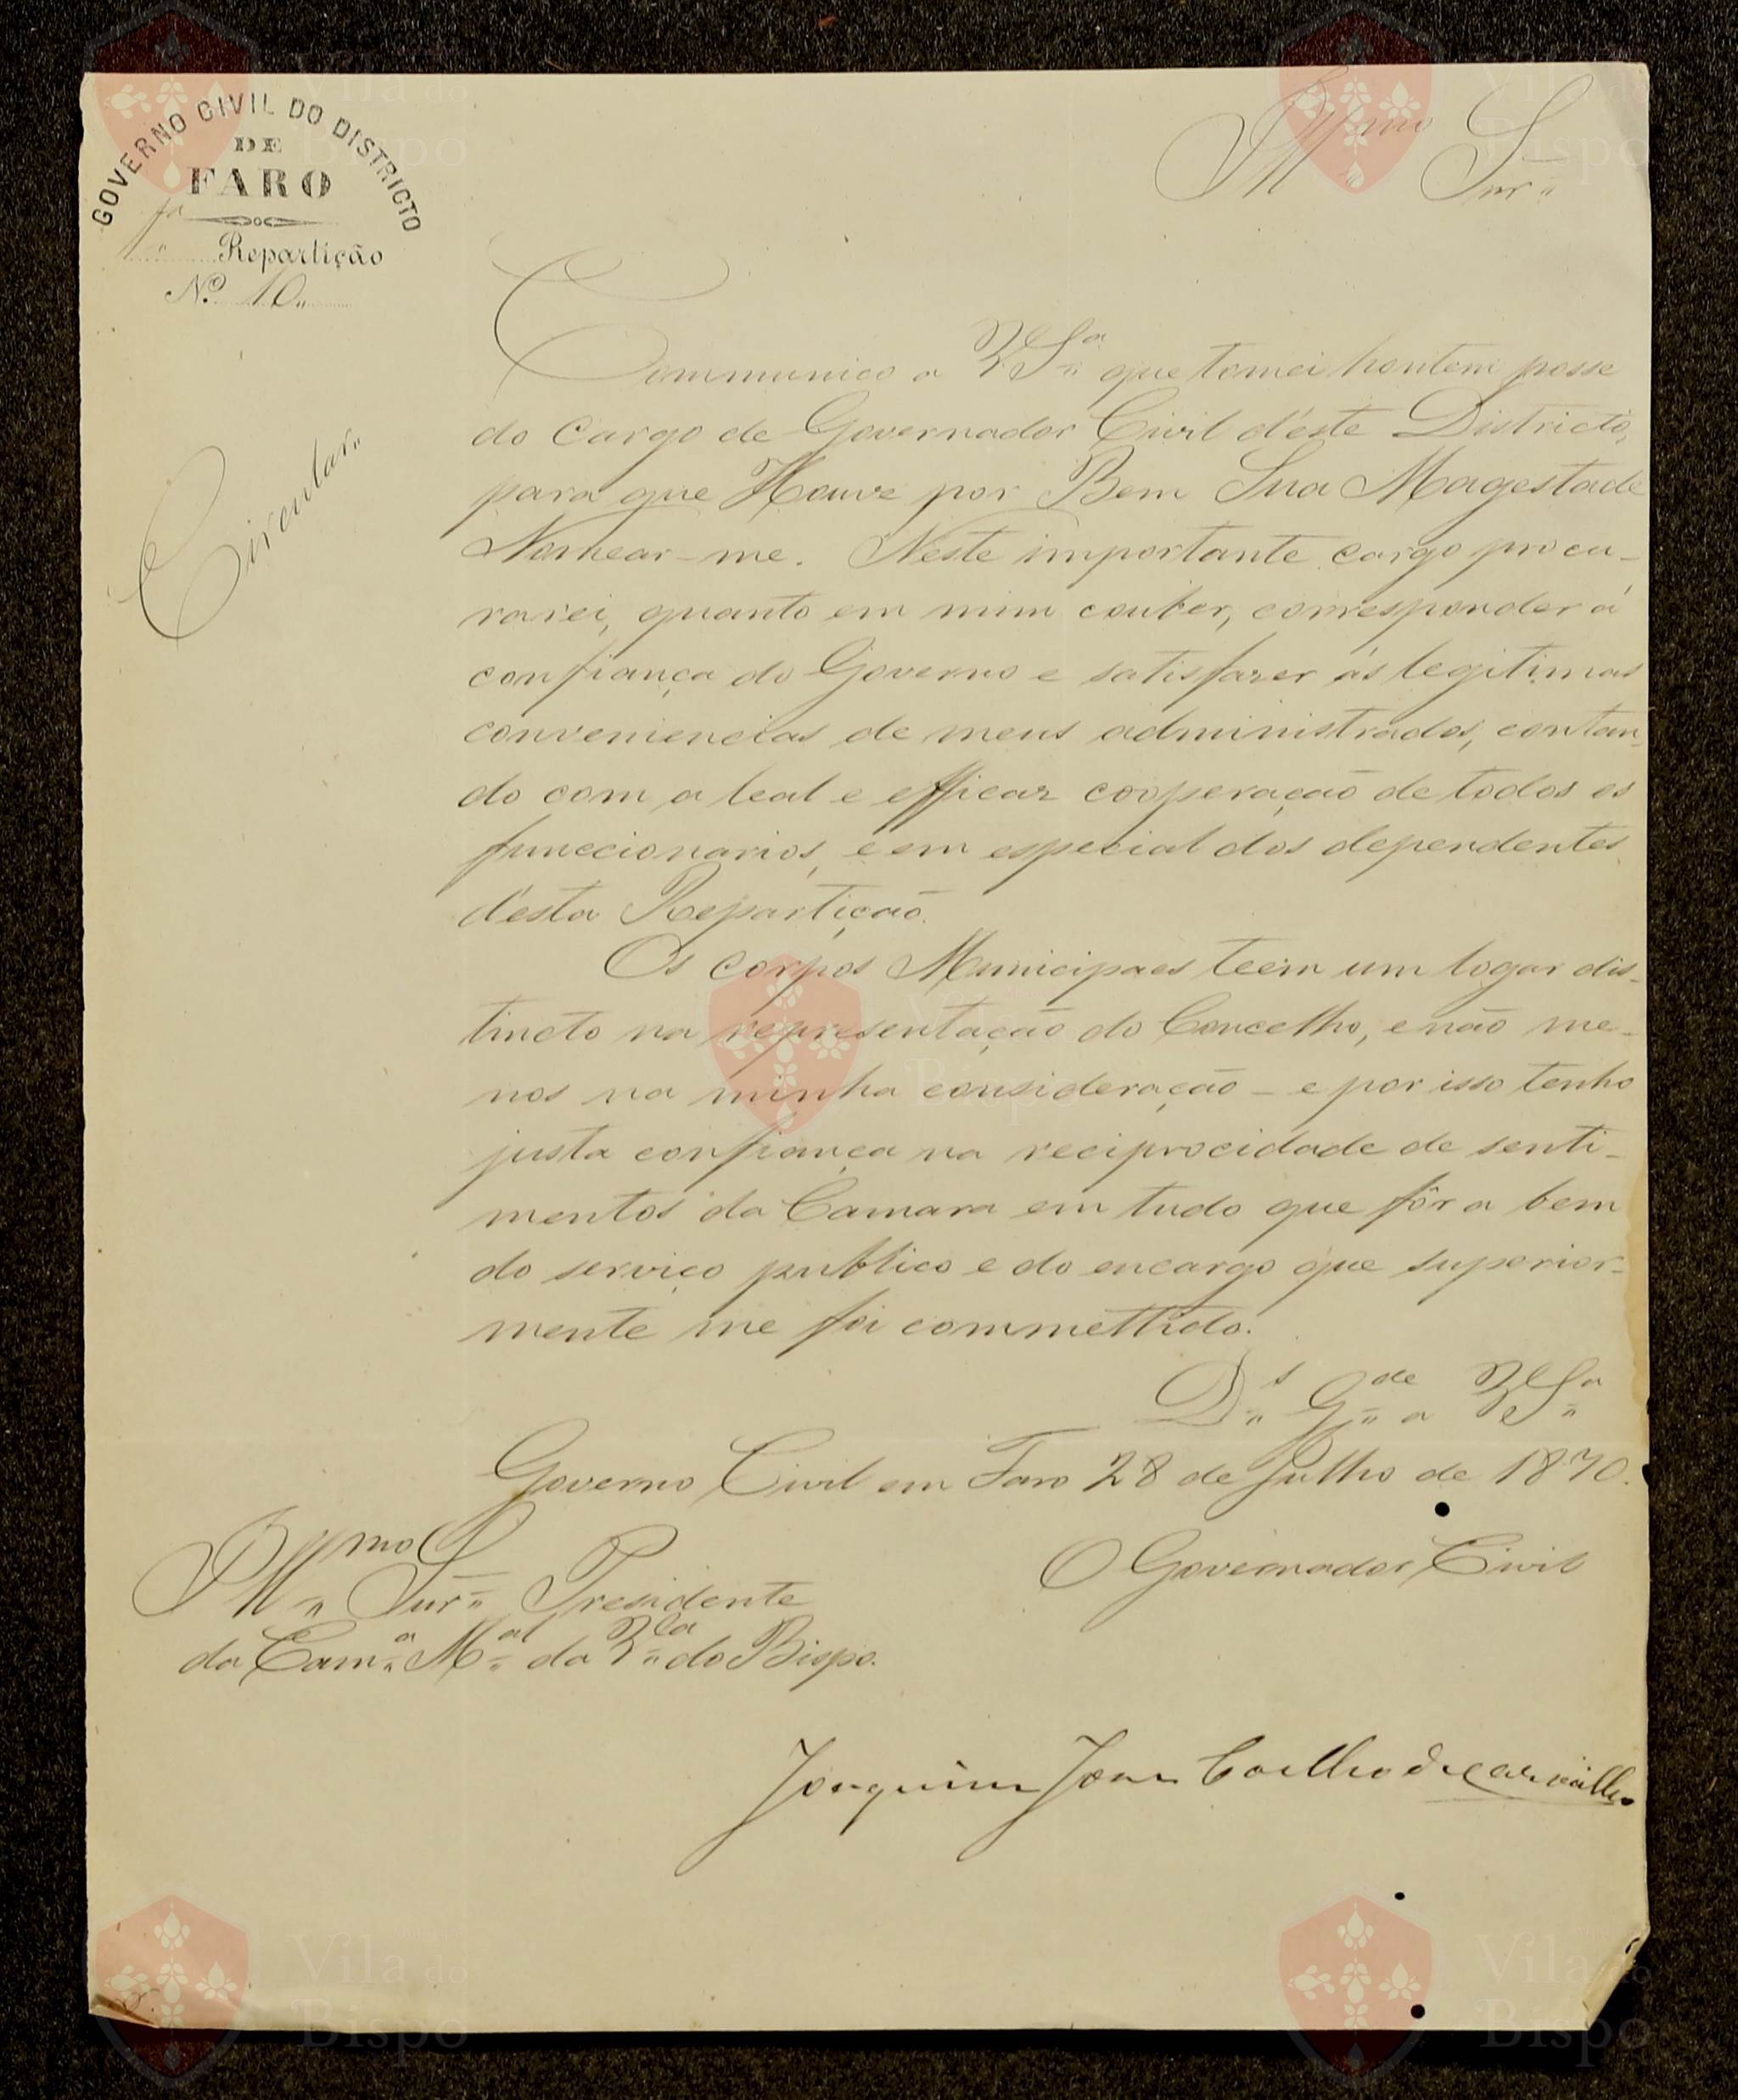 GOVERNO CIVIL DO DISTRICTO
DE
FARO
1ª Repartição
N.º 10
Illmo Snr
Circular
Communico a VSª que tomei hontem posse
do Cargo de Governador Civil d'éste Districto,
para que Houve por Bem Sua Magestade
Nomear-me. Neste importante cargo procu-
rarei, quanto em mim couber, corresponder á
confiança do Governo e satisfazer ás legitimas
conveniencias de meus administrados, contan-
do com a leal e efficaz cooperação de todos os
funccionarios, e em especial dos dependentes
d'ésta Repartição.
Os corpos Municipaes teem um logar dis-
tincto na representação do Concelho, e não me-
nos na minha consideração - e por isso tenho
justa confiança na reciprocidade de senti-
mentos da Camara em tudo que fôr a bem
do serviço publico e do encargo que superior-
mente me foi commettido.
Ds Gde a VSª
Governo Civil em Faro 28 de Julho de 1870.
O Governador Civil
Illmo Snr Presidente
da Camª Mal da Vla do Bispo.
Joaquim José Coelho de Carvalho
Vila do
Bispo
Vila do
Bispo
Vila do
Bispo
Vila do
Bispo
Vila do
Bispo